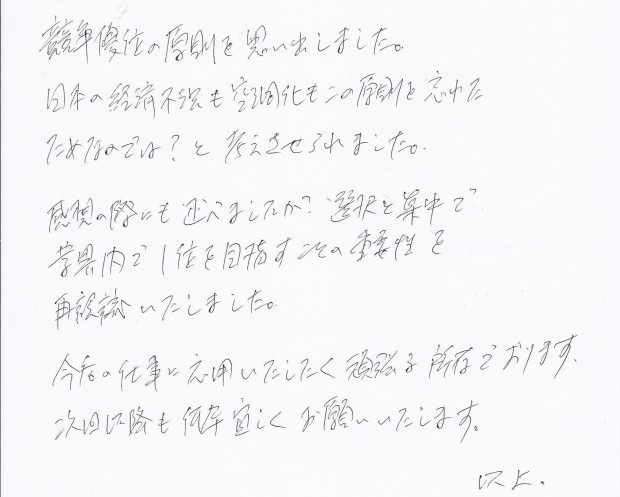 競争優位の原則を思い出しました。
日本の経済不況も空洞化もこの原則を忘れた
ためなのでは?と考えさせられました。
感想の際にも述べましたが?選択と集中で
業界内で1位を目指すことの重要性を
再認識いたしました。
今後の仕事に応用いたしたく頑張る所存であります。
次回以降も何卒宜しくお願いいたします。
以上.